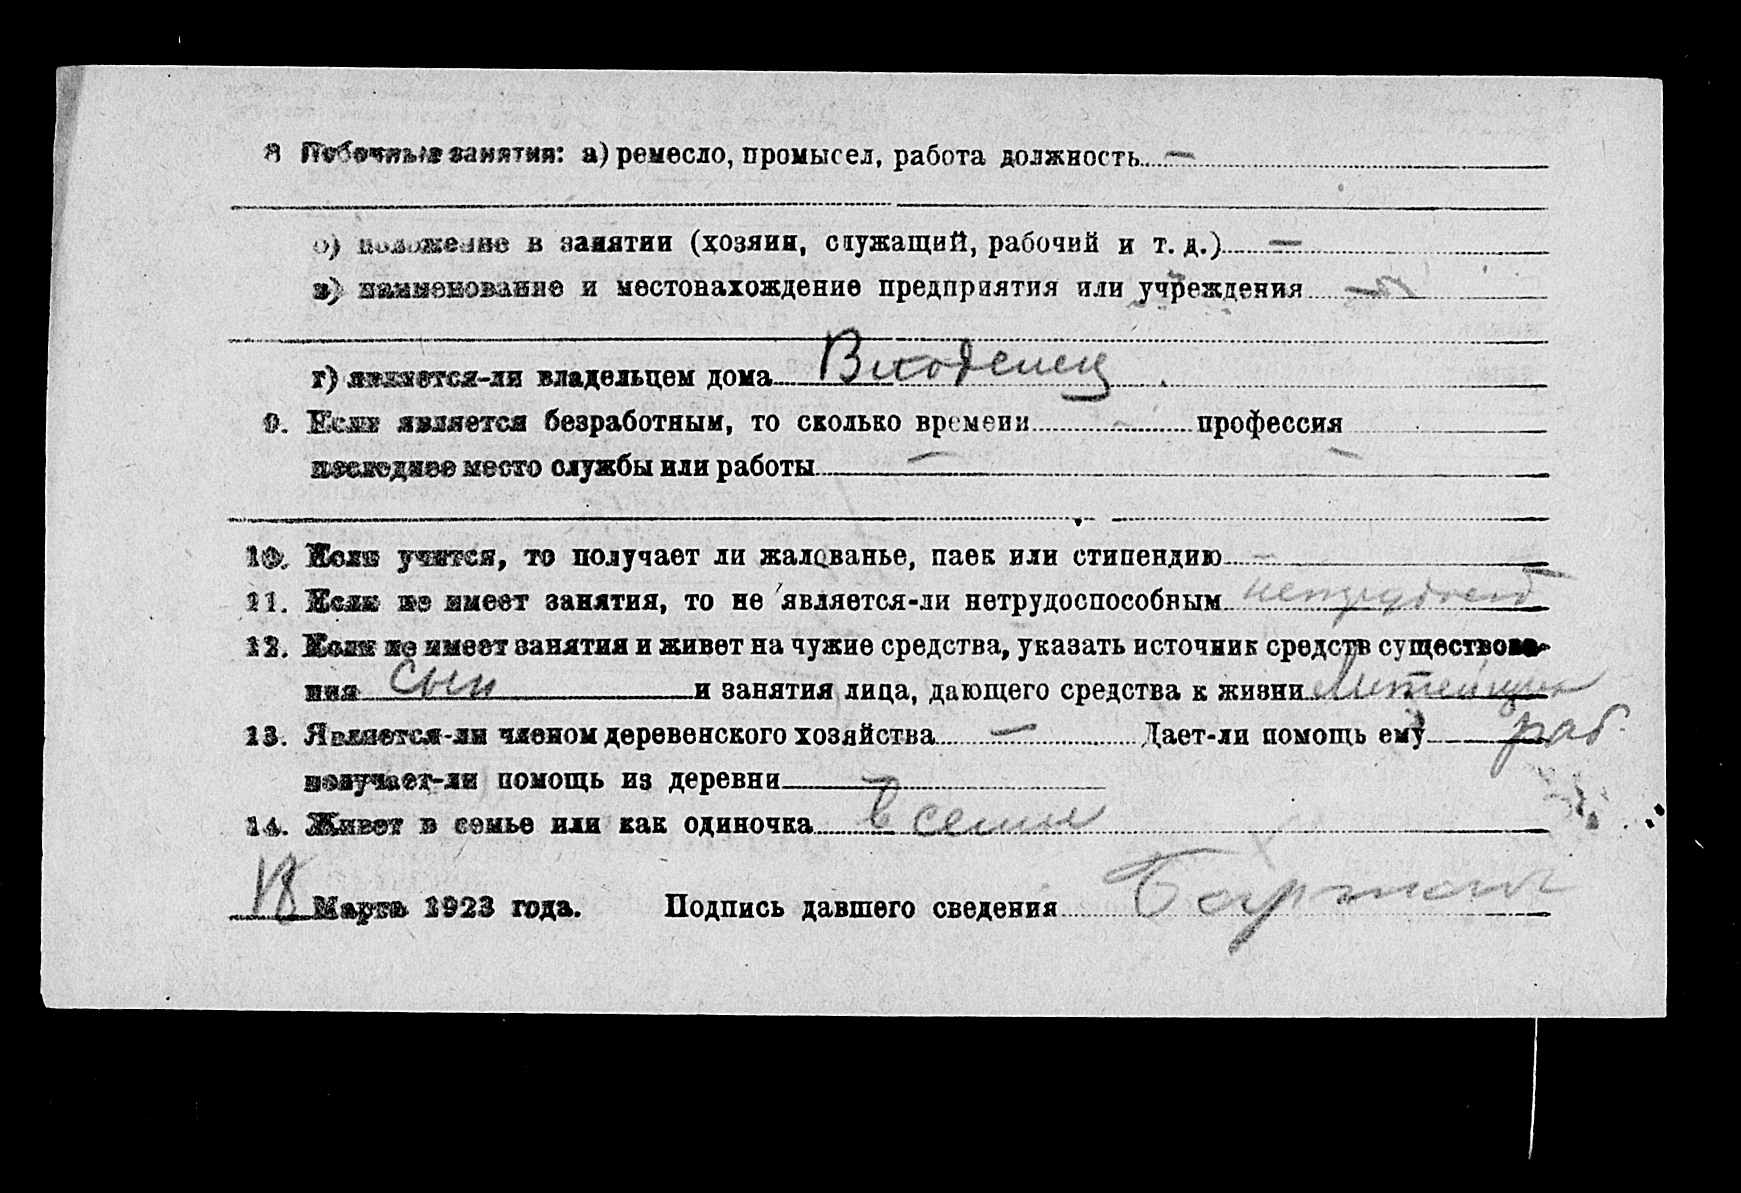 8 Побочные занятия: а) ремесло, промысел, работа должность —
б) положение в занятии (хозяин, служащий, рабочий и т. д.) —
в) наименование и местонахождение предприятия или учреждения —
г) является-ли владельцем дома
9. Если является безработным, то сколько времени — профессия —
последнее место службы или работы —
10. Если учится, то получает ли жалованье, паек или стипендию —
11. Если не имеет занятия, то не является-ли нетрудоспособным нетрудосп
12. Если не имеет занятия и живет на чужие средства, указать источник средств существова-
ния Сын и занятия лица, дающего средства к жизни Литейщик
13. Является-ли членом деревенского хозяйства — Дает-ли помощь ему раб.
получает-ли помощь из деревни —
14. Живет в семье или как одиночка в семье
18 Марта 1923 года. Подпись давшего сведения